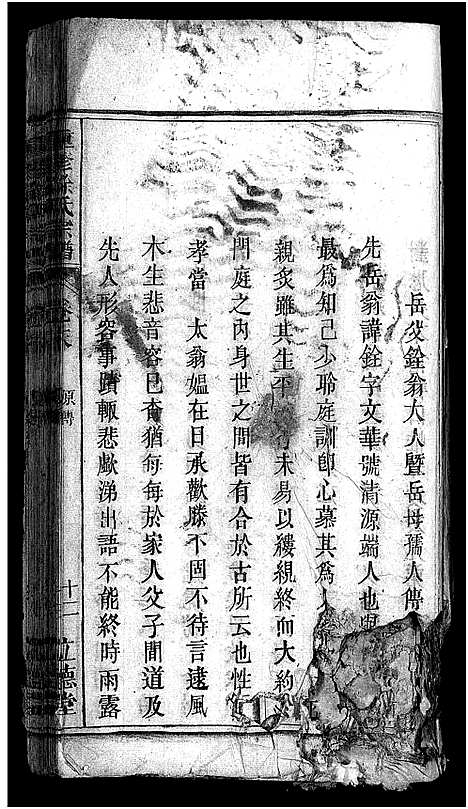 岳父銓翁大人暨岳母孺人傳
先岳翁諱銓字文華號清源端人也與
最為知己少聆庭訓卽心慕其為人
親炙雖其生平未易以縷覼終而大約
門庭之內身世之間皆有合於古所云也性
孝當 太翁媼在日承歡膝下固不待言逮風
木生悲音容已杳猶每每於家人父子間道及
先人形容事蹟輒悲歔涕出語不能終時雨露
徐氏宗譜 卷末 原傳 十二 立德堂